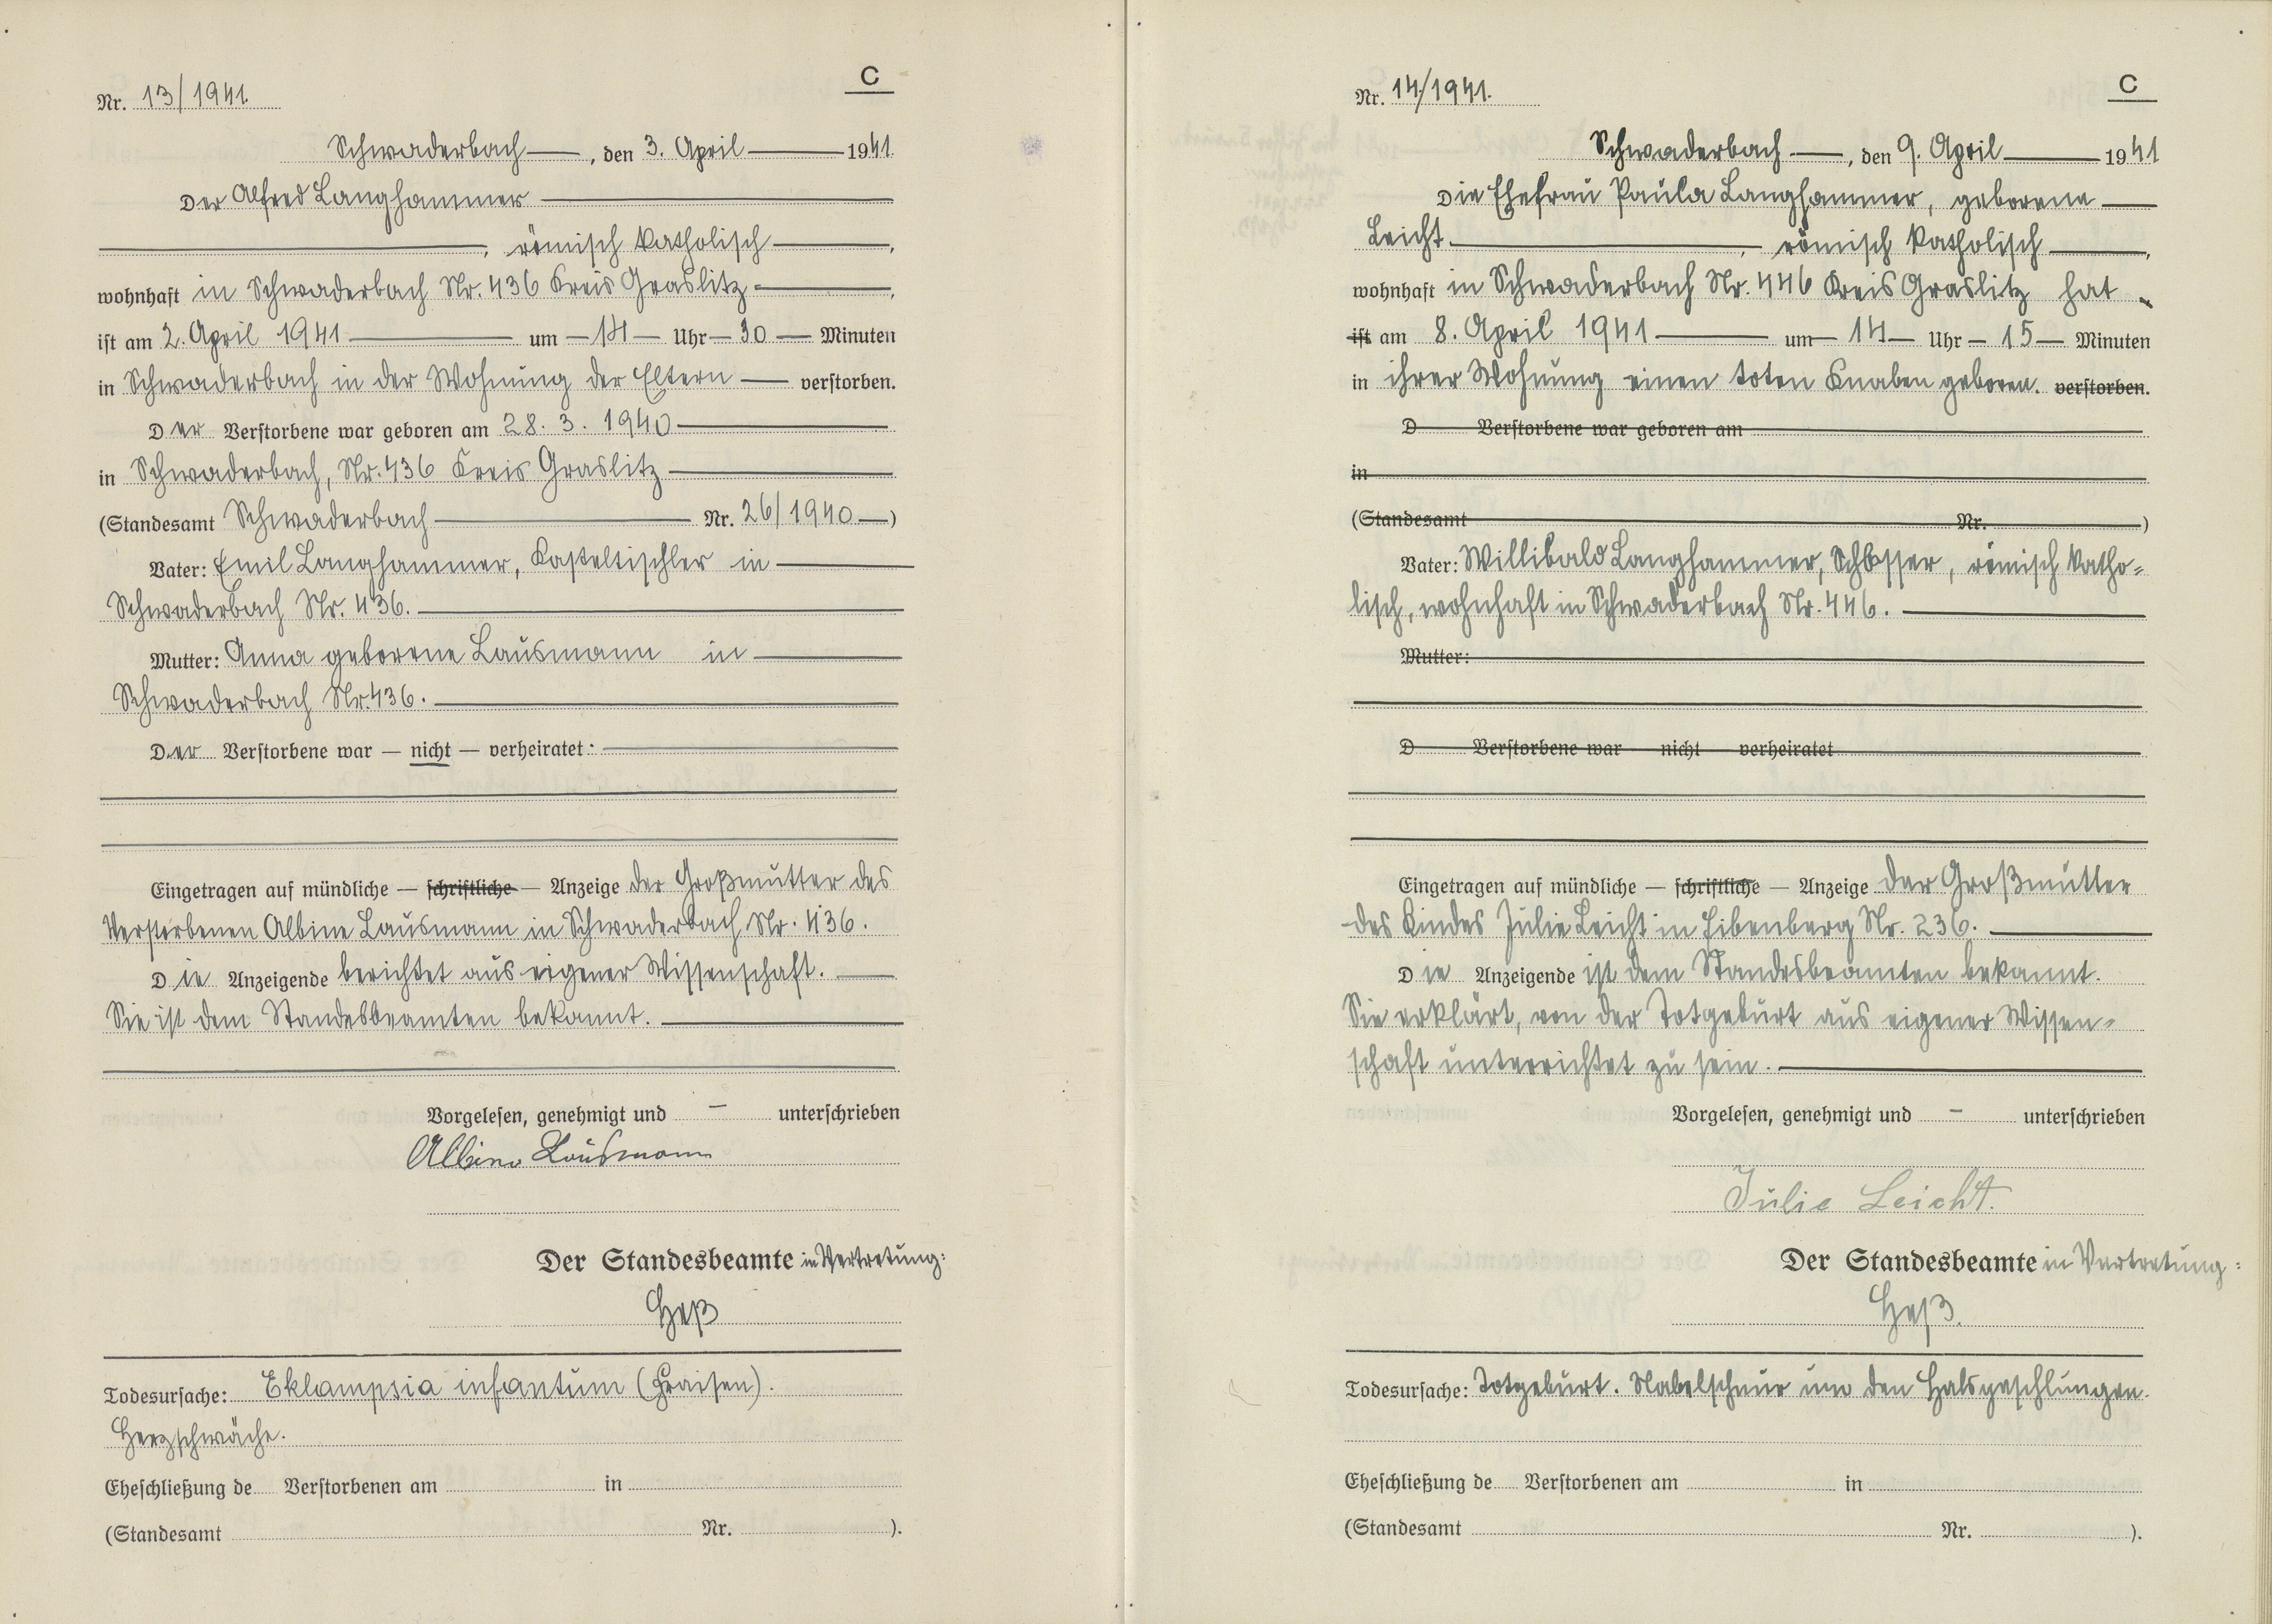 C
Nr. 13/1941.
Schwaderbach, den 3. April 1941.
Der Alfred Langhammer
, römisch katholisch,
wohnhaft in Schwaderbach Nr. 436 Kreis Graslitz,
ist am 2. April 1941 um 14 Uhr 30 Minuten
in Schwaderbach in der Wohnung der Eltern verstorben.
Der Verstorbene war geboren am 28. 3. 1940
in Schwaderbach, Nr. 436 Kreis Graslitz
(Standesamt Schwaderbach Nr. 26/1940)
Vater: Emil Langhammer, in
Schwaderbach Nr. 436.
Mutter: Anna geborene Lausmann in
Schwaderbach Nr. 436.
Der Verstorbene war — nicht — verheiratet:
Eingetragen auf mündliche — schriftliche — Anzeige der Großmutter des
Verstorbenen Albine Lausmann in Schwaderbach Nr. 436.
Die Anzeigende berichtet aus eigener Wissenschaft.
Sie ist dem Standesbeamten bekannt.
Vorgelesen, genehmigt und — unterschrieben
Albine Lausmann
Der Standesbeamte in Vertretung:
Heß
Todesursache: Eklampsia infantum (Fraisen).
Herzschwäche.
Eheschließung de Verstorbenen am in
(Standesamt Nr. ).
C
Nr. 14/1941.
Schwaderbach, den 9. April 1941
Die Ehefrau Paula Langhammer, geborene
Leicht, römisch katholisch,
wohnhaft in Schwaderbach Nr. 446 Kreis Graslitz hat
ist am 8. April 1941 um 14 Uhr 15 Minuten
in ihrer Wohnung einen toten Knaben geboren. verstorben.
D Verstorbene war geboren am
in
(Standesamt Nr. )
Vater: Willibald Langhammer, Schlosser, römisch katho-
lisch, wohnhaft in Schwaderbach Nr. 446.
Mutter:
D Verstorbene war nicht verheiratet
Eingetragen auf mündliche — schriftliche — Anzeige der Großmutter
des Kindes Julie Leicht in Eibenberg Nr. 236.
Die Anzeigende ist dem Standesbeamten bekannt.
Sie erklärt, von der Totgeburt aus eigener Wissen-
schaft unterrichtet zu sein.
Vorgelesen, genehmigt und — unterschrieben
Julie Leicht.
Der Standesbeamte in Vertretung:
Heß.
Todesursache: Totgeburt. Nabelschnur um den Hals geschlungen.
Eheschließung de Verstorbenen am in
(Standesamt Nr. ).